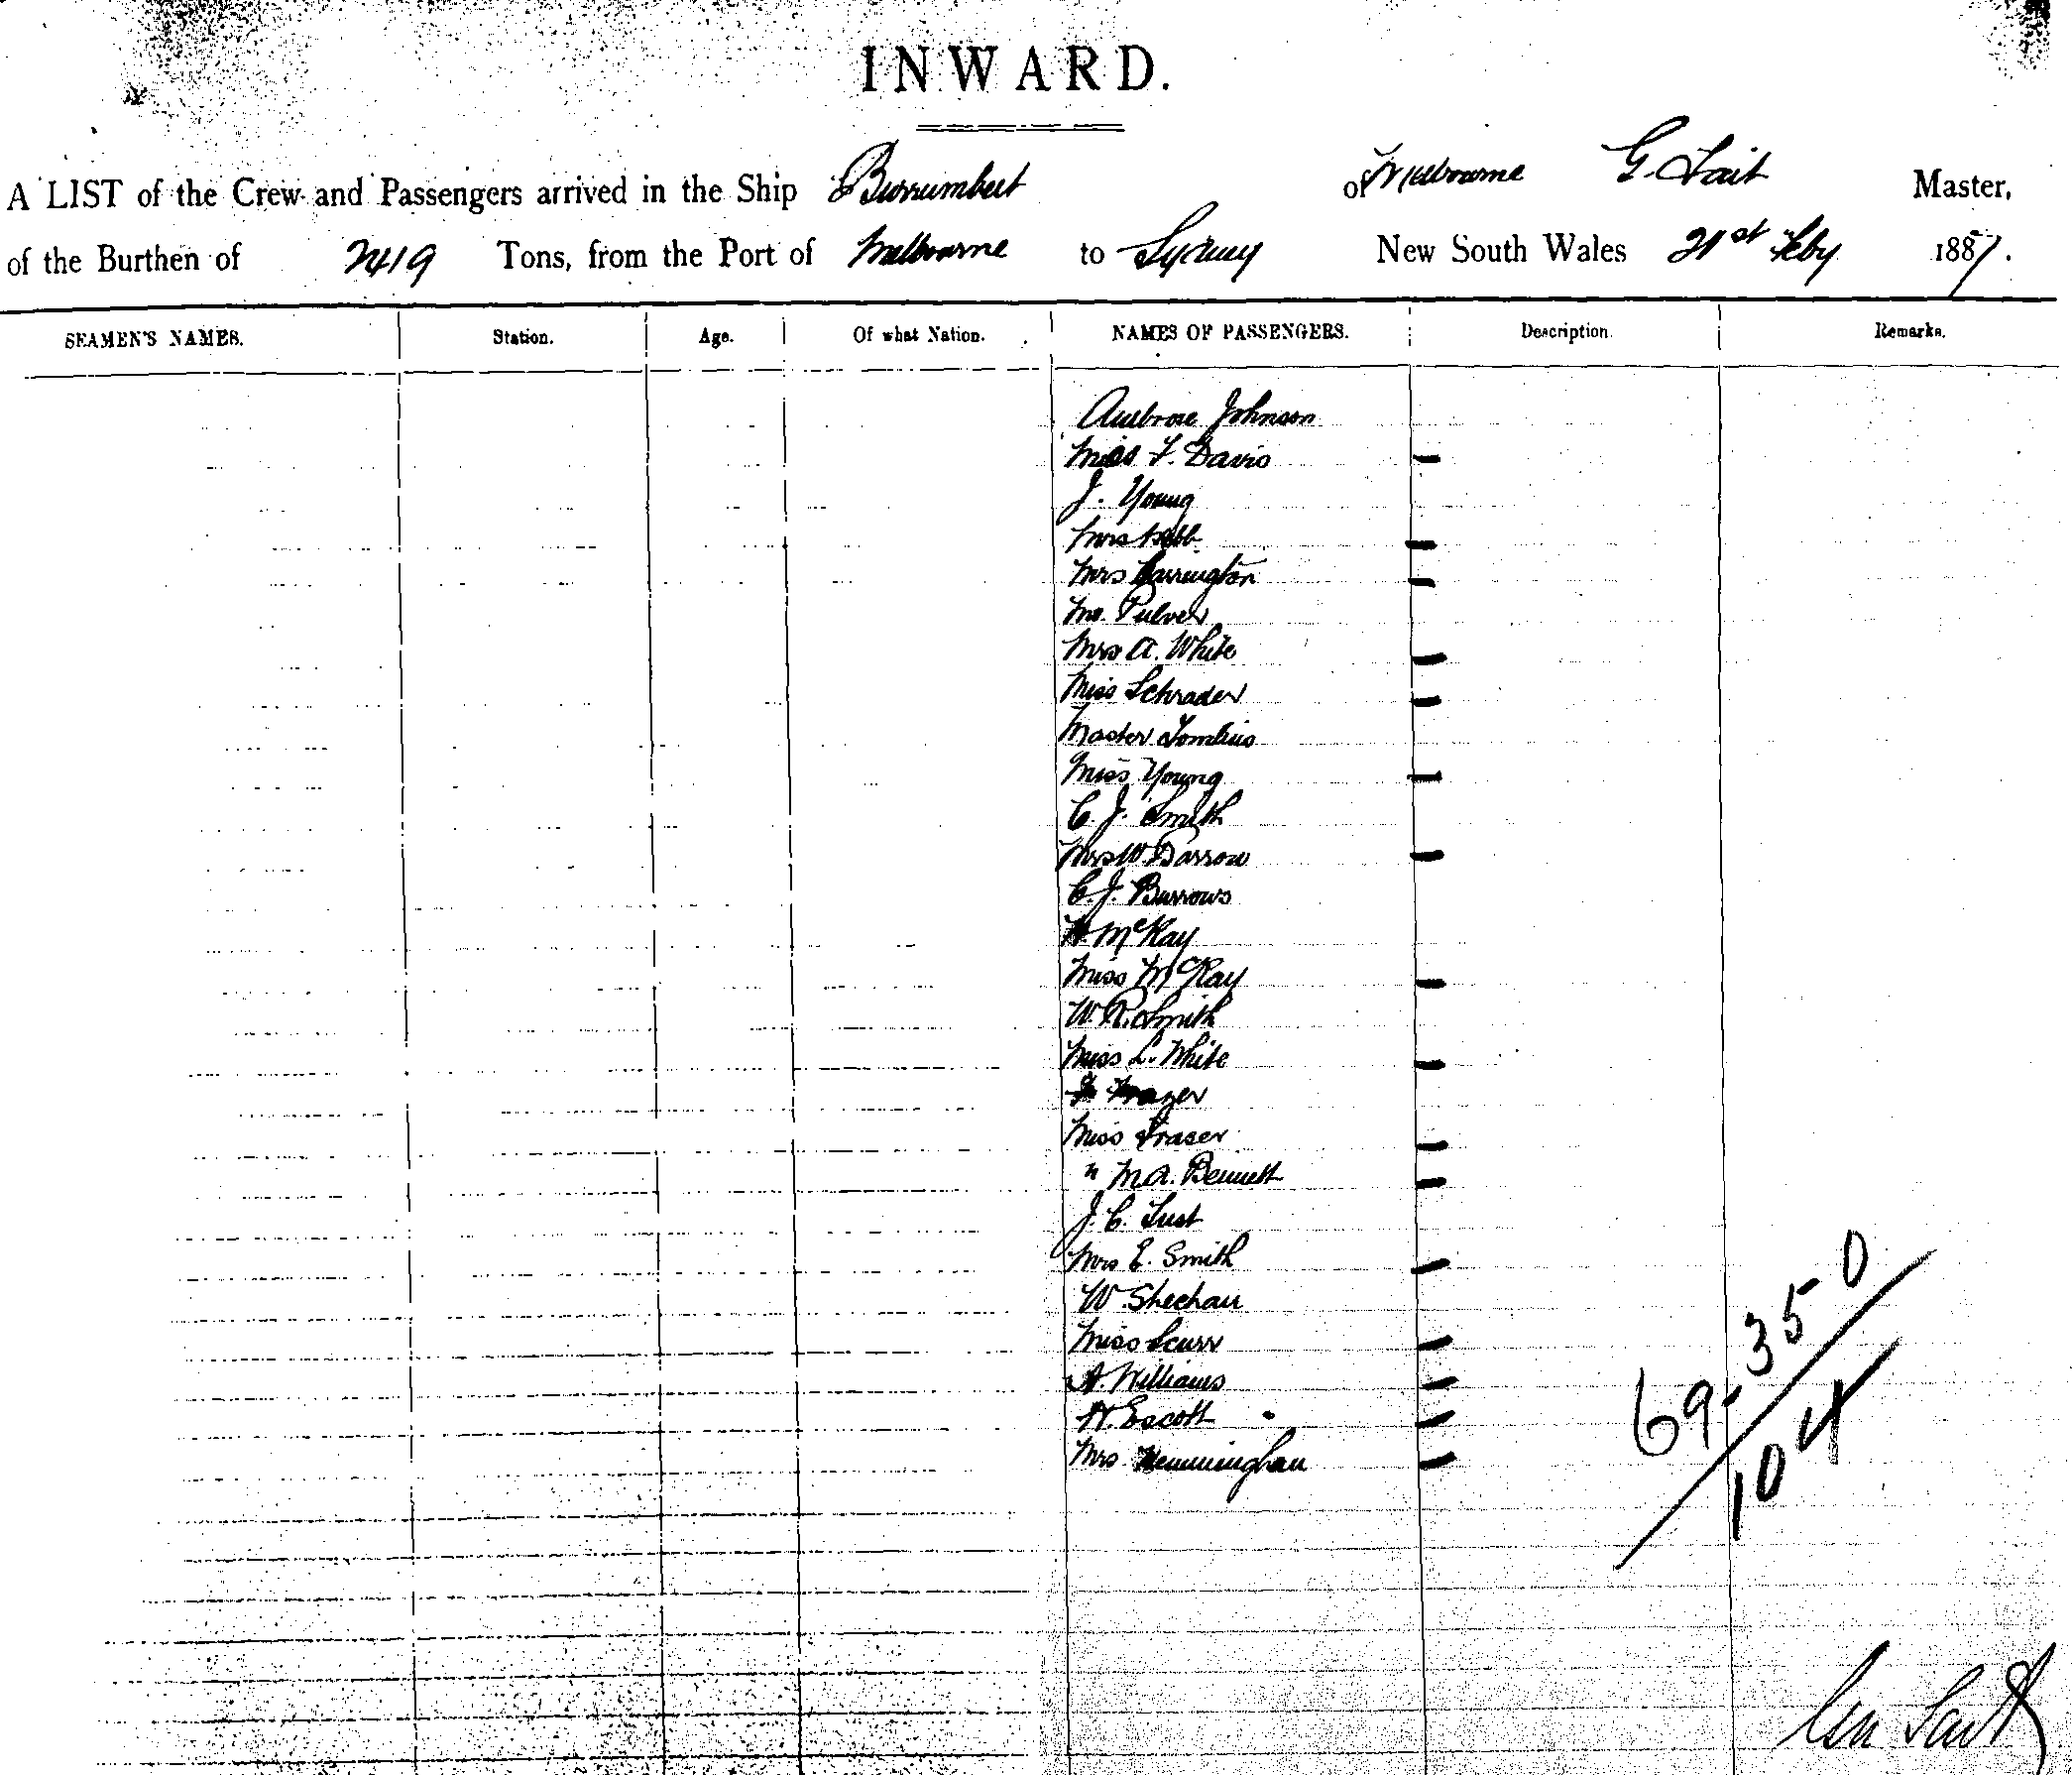 INWARD.
A LIST of the Crew and Passengers arrived in the Ship Burrumbeet of Melbourne G. Tait Master,
of the Burthen of 2419 Tons, from the Port of Melbourne to Sydney New South Wales 21st Feby 1887.
SEAMEN'S NAMES. Station. Age. Of what Nation. NAMES OF PASSENGERS. Description. Remarks.
Ambrose Johnson
Miss F. Davis
J. Young
Mrs Webb
Mrs Carrington
Mr. Pulver
Mrs A. White
Miss Schrader
Master Tomlins
Miss Young
C. J. Smith
Mrs W. Darrow
C. J. Burrows
McKay
Miss McKay
W. R. Smith
Miss L. White
Frazer
Miss Fraser
" M A. Bennett
J. C. Lust
Mrs E. Smith
W. Sheehan
Miss Scurr
A. Williams
A. Escott
Mrs Henninghan
69.350
104